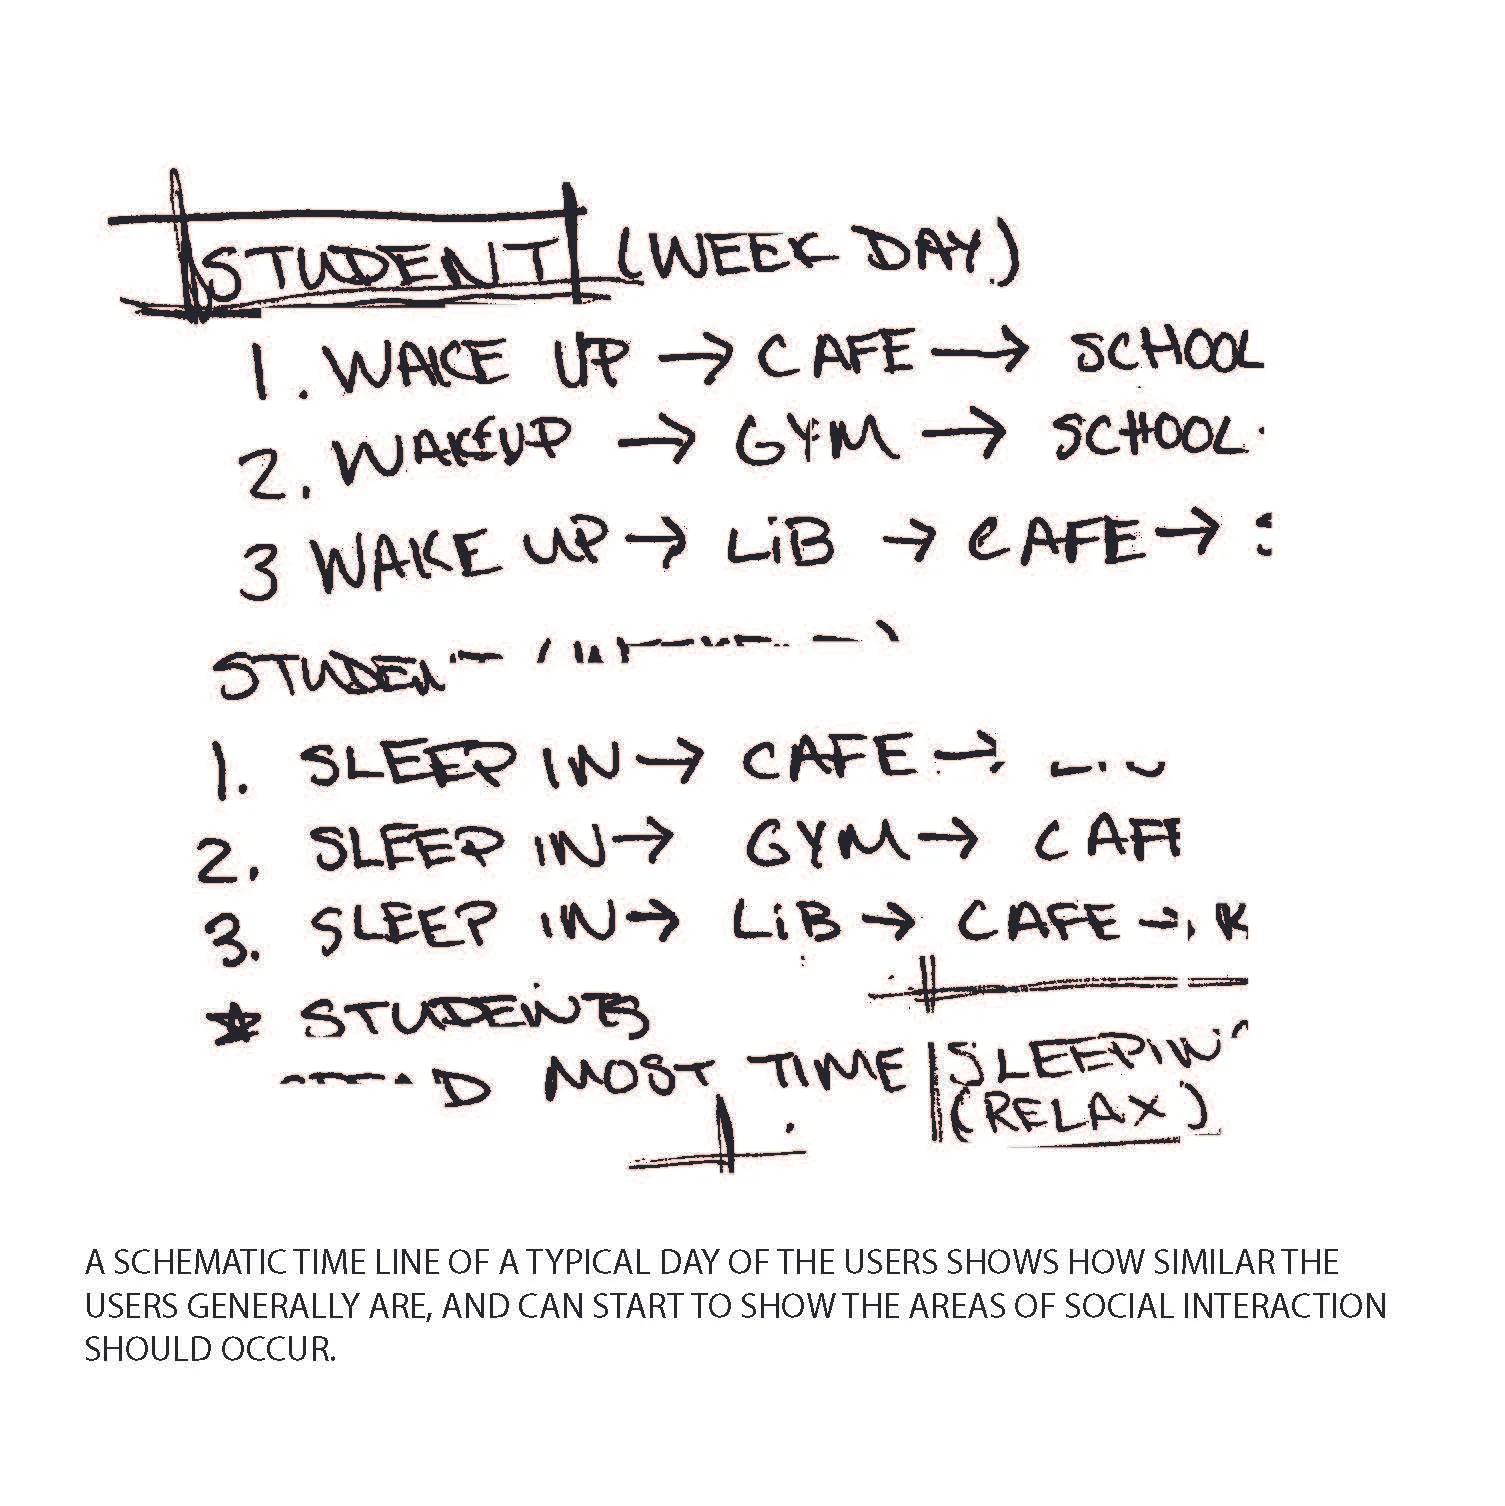 STUDENT (WEEK DAY)
1. WAKE UP → CAFE → SCHOOL
2. WAKEUP → GYM → SCHOOL
3 WAKE UP → LiB → CAFE →
1. SLEEP IN → CAFE →
2. SLEEP IN → GYM → CAF
3. SLEEP IN → LiB → CAFE
★ STUDENTS
MOST TIME SLEEPIN
(RELAX)
A SCHEMATIC TIME LINE OF A TYPICAL DAY OF THE USERS SHOWS HOW SIMILAR THE
USERS GENERALLY ARE, AND CAN START TO SHOW THE AREAS OF SOCIAL INTERACTION
SHOULD OCCUR.